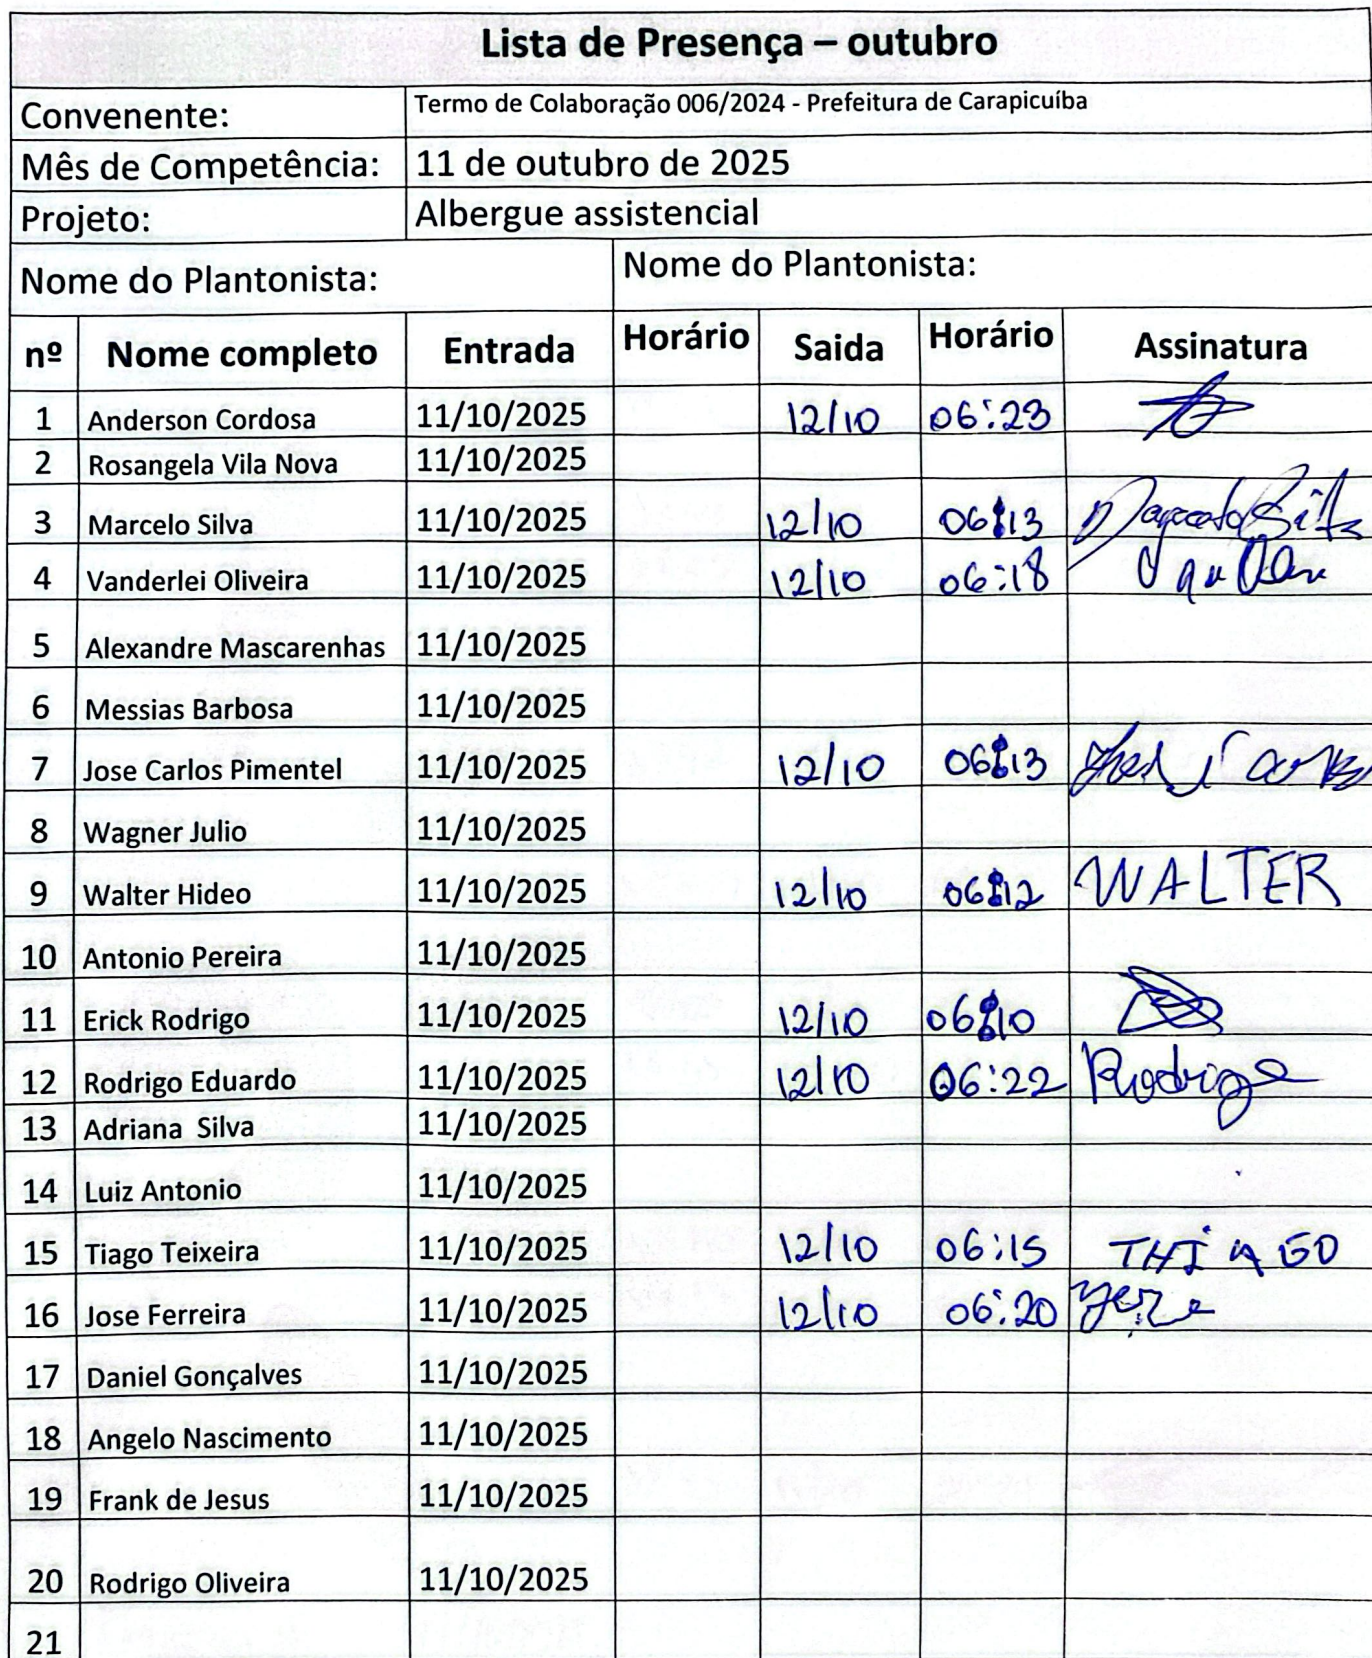 Lista de Presença – outubro
Convenente: Termo de Colaboração 006/2024 - Prefeitura de Carapicuíba
Mês de Competência: 11 de outubro de 2025
Projeto: Albergue assistencial
Nome do Plantonista: Nome do Plantonista:
nº Nome completo Entrada Horário Saida Horário Assinatura
1 Anderson Cordosa 11/10/2025 12/10 06:23
2 Rosangela Vila Nova 11/10/2025
3 Marcelo Silva 11/10/2025 12/10 06:13
4 Vanderlei Oliveira 11/10/2025 12/10 06:18
5 Alexandre Mascarenhas 11/10/2025
6 Messias Barbosa 11/10/2025
7 Jose Carlos Pimentel 11/10/2025 12/10 06:13
8 Wagner Julio 11/10/2025
9 Walter Hideo 11/10/2025 12/10 06:12 WALTER
10 Antonio Pereira 11/10/2025
11 Erick Rodrigo 11/10/2025 12/10 06:10
12 Rodrigo Eduardo 11/10/2025 12/10 06:22 Rodrigo
13 Adriana Silva 11/10/2025
14 Luiz Antonio 11/10/2025
15 Tiago Teixeira 11/10/2025 12/10 06:15 THIAGO
16 Jose Ferreira 11/10/2025 12/10 06:20
17 Daniel Gonçalves 11/10/2025
18 Angelo Nascimento 11/10/2025
19 Frank de Jesus 11/10/2025
20 Rodrigo Oliveira 11/10/2025
21